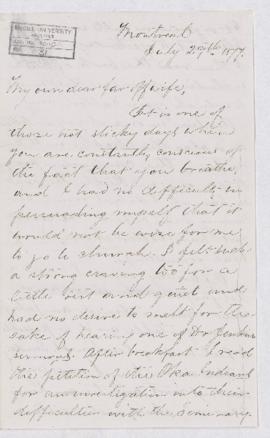 McGILL UNIVERSITY
ARCHIVES
ACC. NO.
Montreal
July 29th 1877.
My own dear far off wife,
It is one of
those hot sticky days when
you are constantly conscious of
the fact that you breathe,
and I had no difficulty in
persuading myself that it
would not be wise for me
to go to church. I felt such
a strong craving too for a
little rest and quiet and
had no desire to melt for the
sake of hearing one of Dr Jenkins
sermons. After breakfast I read
the petition of the Oka Indians
for an investigation into their
difficulties with the seminary